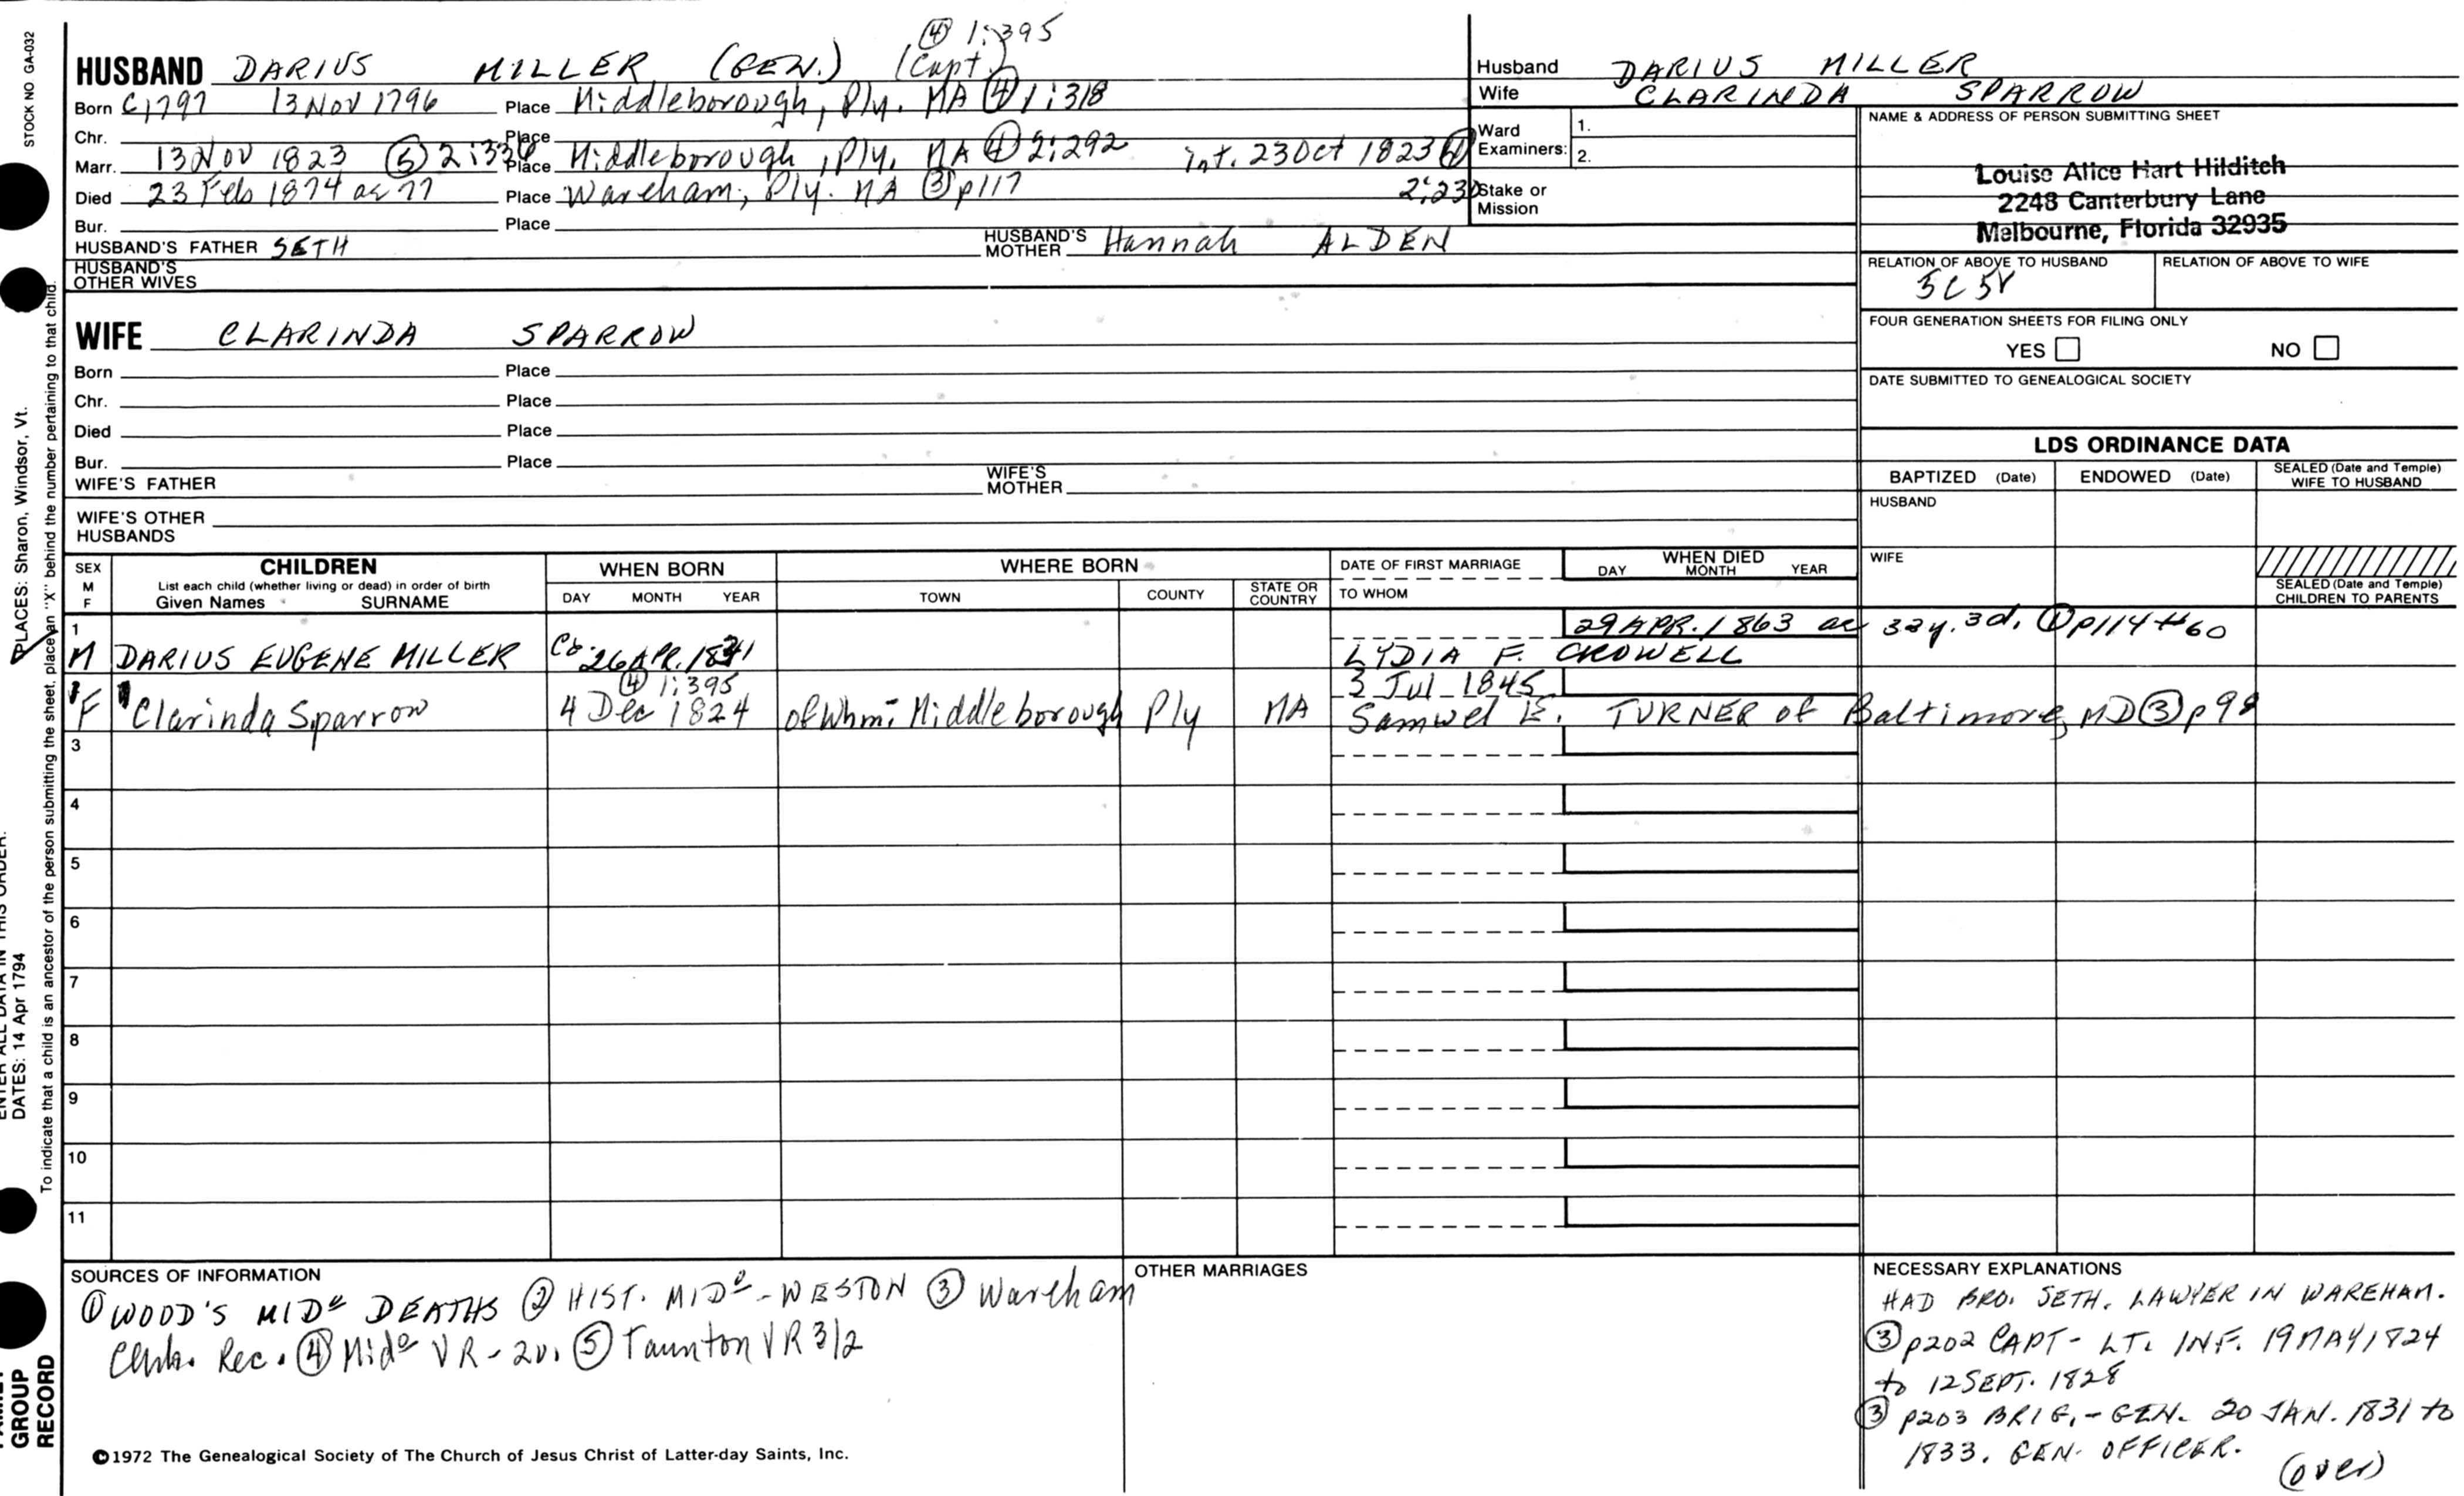 ④ 1:395
HUSBAND DARIUS MILLER (GEN.) (Capt.)
Born C1797 13 Nov 1796 Place Middleborough, Ply. MA ④ 1:318
Chr. Place
Marr. 13 Nov 1823 ⑤ 2:334 Place Middleborough, Ply, MA ④ 2:292 int. 23 Oct 1823 ④
2:230
Died 23 Feb 1874 ae 77 Place Wareham, Ply. MA ③ p117
Bur. Place
HUSBAND'S FATHER SETH HUSBAND'S MOTHER Hannah ALDEN
HUSBAND'S OTHER WIVES
WIFE CLARINDA SPARROW
Born Place
Chr. Place
Died Place
Bur. Place
WIFE'S FATHER WIFE'S MOTHER
WIFE'S OTHER HUSBANDS
Husband DARIUS MILLER
Wife CLARINDA SPARROW
Ward Examiners: 1.
2.
Stake or Mission
NAME & ADDRESS OF PERSON SUBMITTING SHEET
Louise Alice Hart Hilditch
2248 Canterbury Lane
Melbourne, Florida 32935
RELATION OF ABOVE TO HUSBAND RELATION OF ABOVE TO WIFE
5C5r
FOUR GENERATION SHEETS FOR FILING ONLY
YES NO
DATE SUBMITTED TO GENEALOGICAL SOCIETY
LDS ORDINANCE DATA
BAPTIZED (Date) ENDOWED (Date) SEALED (Date and Temple) WIFE TO HUSBAND
HUSBAND
WIFE
SEALED (Date and Temple) CHILDREN TO PARENTS
SEX M F
CHILDREN
List each child (whether living or dead) in order of birth
Given Names SURNAME
WHEN BORN
DAY MONTH YEAR
WHERE BORN
TOWN COUNTY STATE OR COUNTRY
DATE OF FIRST MARRIAGE
TO WHOM
WHEN DIED
DAY MONTH YEAR
1 29 APR. 1863 ae 32y. 3d. ① p114 #60
M DARIUS EUGENE MILLER Cb. 26 APR. 1831 LYDIA F. CROWELL
④ 1:395 3 Jul 1845
F Clarinda Sparrow 4 Dec 1824 of Whm. Middleborough Ply MA Samuel E. TURNER of Baltimore, MD ③ p98
3
4
5
6
7
8
9
10
11
SOURCES OF INFORMATION
① WOOD'S MIDo DEATHS ② HIST. MIDo - WESTON ③ Wareham
Chh. Rec. ④ Mido VR - 2v. ⑤ Taunton VR 3/2
OTHER MARRIAGES
NECESSARY EXPLANATIONS
HAD BRO. SETH. LAWYER IN WAREHAM.
③ p202 CAPT - LT. INF. 19 MAY 1824
to 12 SEPT. 1828
③ p203 BRIG. - GEN. 20 JAN. 1831 to
1833. GEN. OFFICER.
(over)
©1972 The Genealogical Society of The Church of Jesus Christ of Latter-day Saints, Inc.
STOCK NO GA-032
PLACES: Sharon, Windsor, Vt.
To indicate that a child is an ancestor of the person submitting the sheet, place an "X" behind the number pertaining to that child.
ENTER ALL DATA IN THIS ORDER:
DATES: 14 Apr 1794
FAMILY
GROUP
RECORD